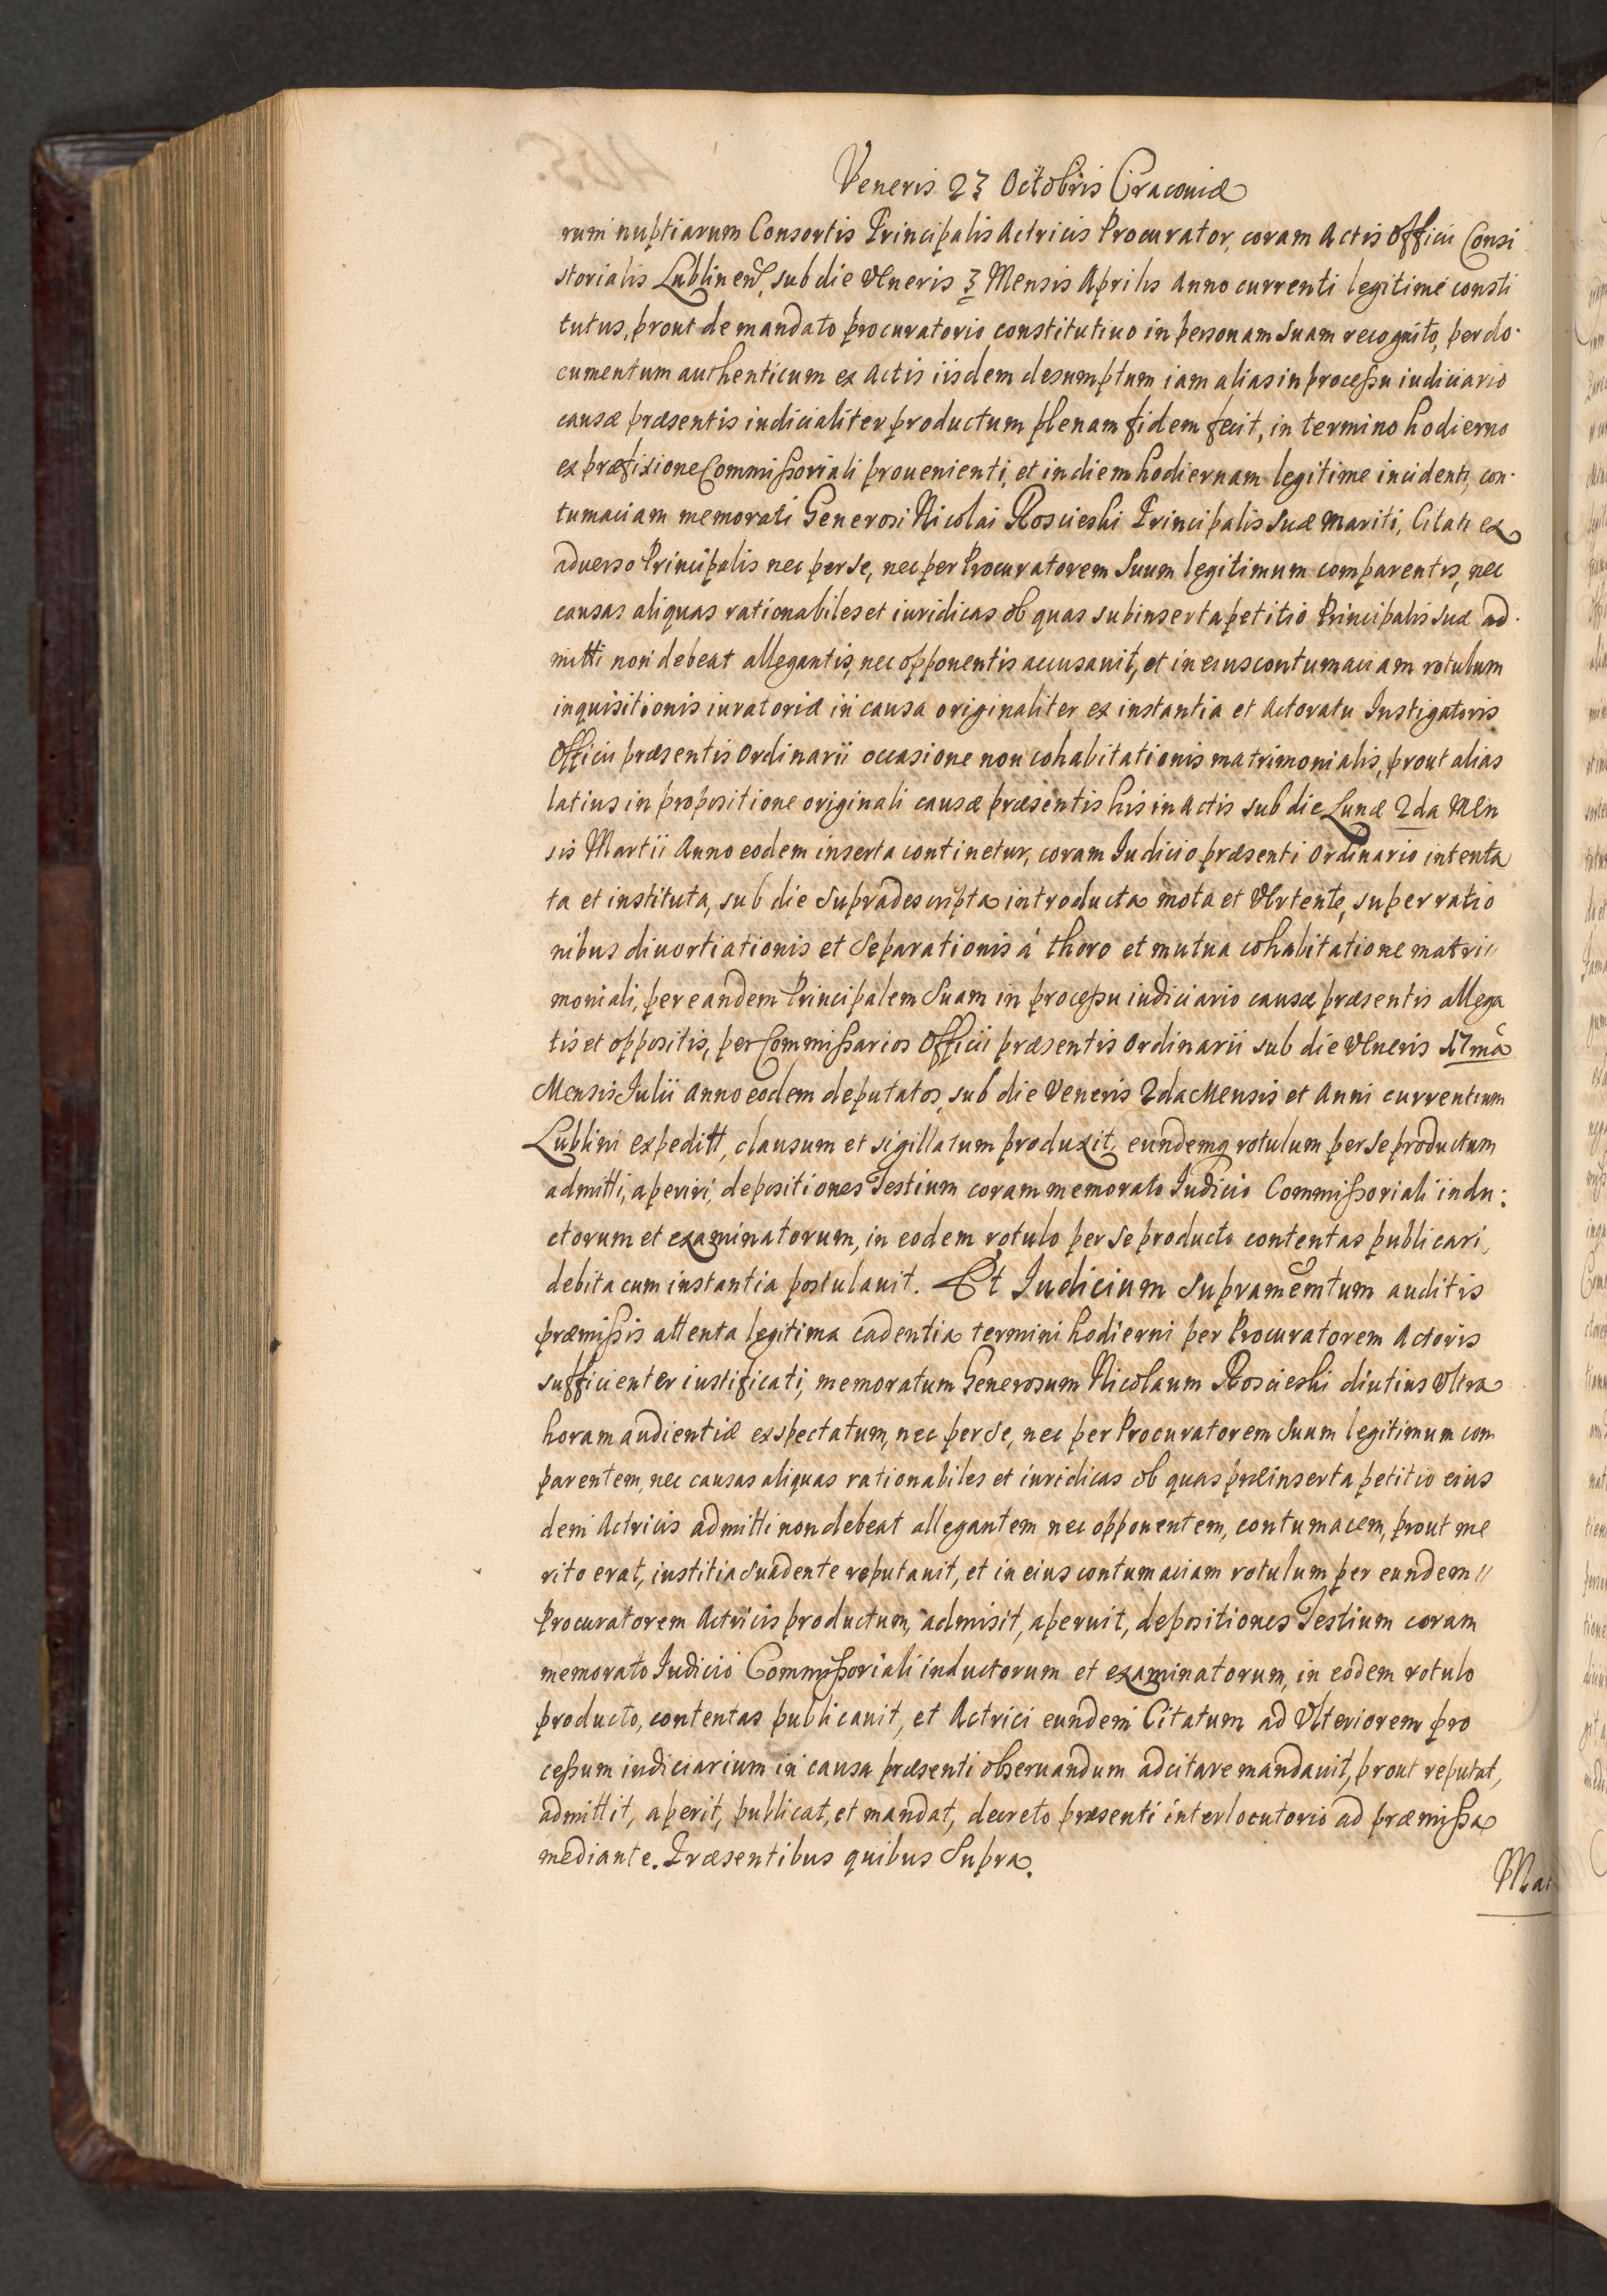 Veneris 23 Octobris Cracouiæ
rum nuptiarum Consortis Principalis Actricis Procurator, coram Actis Officii Consi
storialis Lublinen, sub die Veneris 3 Mensis Aprilis Anno currenti legitime consti
tutus, prout de mandato procuratorio constitutiuo in personam suam recognito, per do
cumentum authenticum ex Actis iisdem desumptum iam alias in processu iudiciario
causæ præsentis iudicialiter productum plenam fidem fecit, in termino hodierno
ex præfixione Commissoriali prouenienti, et in diem hodiernam legitime incidenti, con
tumaciam memorati Generosi Nicolai Roscieski Principalis suæ mariti, Citati ex
aduerso Principalis nec per se, nec per Procuratorem suum legitimum comparentis, nec
causas aliquas rationabiles et iuridicas ob quas subinserta petitio Principalis suæ ad
mitti non debeat allegantis, nec opponentis accusauit, et in eius contumaciam rotulum
inquisitionis iuratoriæ in causa originaliter ex instantia et Actoratu Instigatoris
Officii præsentis Ordinarii occasione non cohabitationis matrimonialis, prout alias
latius in propositione originali causæ præsentis his in Actis sub die Lunæ 2da Men
sis Martii Anno eodem inserta continetur, coram Iudicio præsenti Ordinario intenta
ta et instituta, sub die supradescripta introducta mota et Vertente, super ratio
nibus diuortiationis et separationis à thoro et mutua cohabitatione matri
moniali, per eandem Principalem suam in processu iudiciario causæ præsentis allega
tis et oppositis, per Commissarios Officii præsentis Ordinarii sub die Veneris 17ma
Mensis Iulii Anno eodem deputatos, sub die Veneris 2da Mensis et Anni currentium
Lublini expeditt, clausum et sigillatum produxit, eundemq rotulum per se productum
admitti, aperiri, depositiones Testium coram memorato Iudicio Commissoriali indu:
ctorum et examinatorum, in eodem rotulo per se producto contentas publicari,
debita cum instantia postulauit. Et Iudicium supramemtum auditis
præmissis attenta legitima cadentia termini hodierni per Procuratorem Actoris
sufficienter iustificati, memoratum Generosum Nicolaum Roscieski diutius Vltra
horam audientiæ exspectatum, nec per se, nec per Procuratorem suum legitimum com
parentem, nec causas aliquas rationabiles et iuridicas ob quas præinserta petitio eius
dem Actricis admitti non debeat allegantem nec opponentem, contumacem, prout me
rito erat, iustitia suadente reputauit, et in eius contumaciam rotulum per eundem
Procuratorem Actricis productum, admisit, aperuit, depositiones Testium coram
memorato Iudicio Commissoriali inductorum et examinatorum, in eodem rotulo
producto, contentas publicauit, et Actrici eundem Citatum ad Vlteriorem pro
cessum iudiciarium in causa præsenti obseruandum adcitare mandauit, prout reputat,
admittit, aperit, publicat, et mandat, decreto præsenti interlocutorio ad præmissa
mediante. Præsentibus quibus supra.